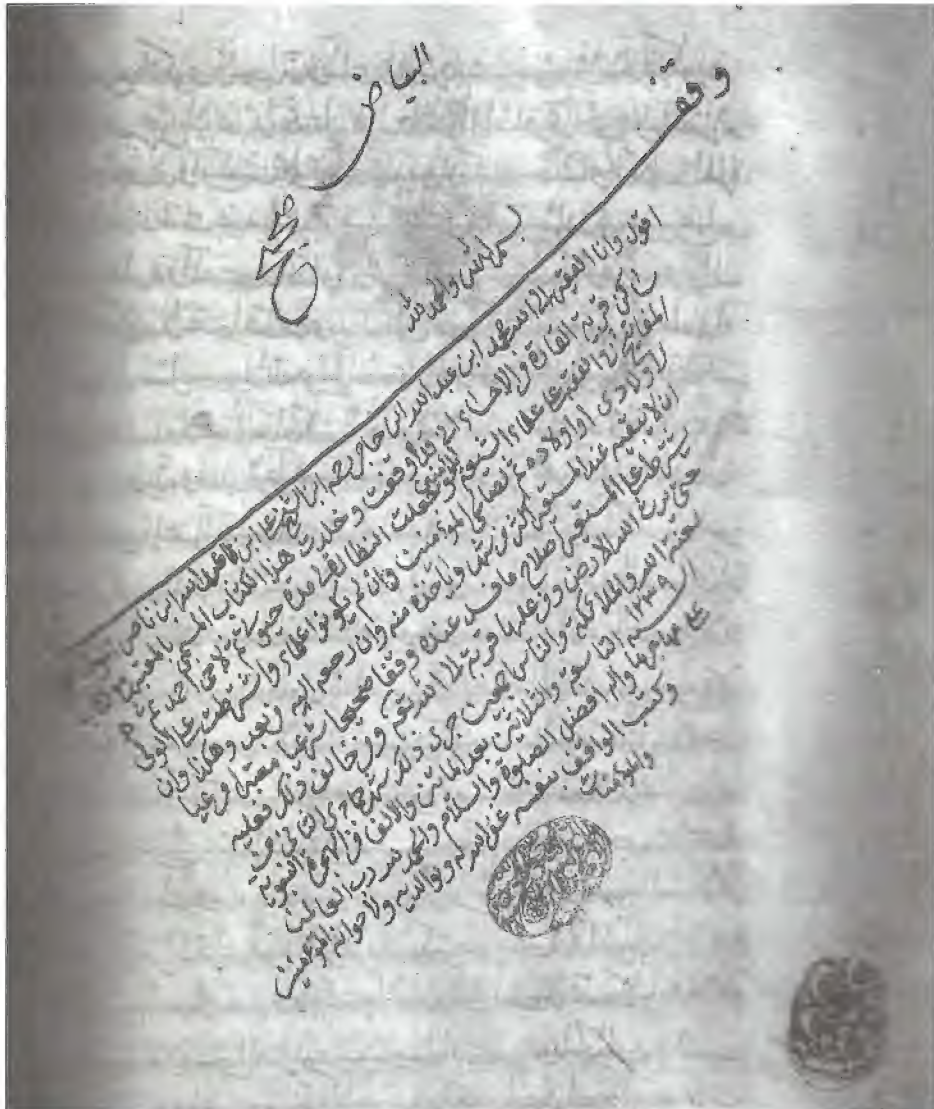 البياض
صحيح
وقف
بسم الله والحمد لله
اقول وانا الفقير الى الله محمد ابن عبد الله ابن حاجي ابن الشيخ علي ابن ابن ناصر
ساكن قرية القارة في الاحساء اني قد اوقفت وخلدت هذا الكتاب المسمى
المفاتيح في الفقه على علماء الشيعة وجعلت النظارة مدة حيوتي ثم لاخي احمد ثم
لاولادي او اولادهم ثم لصالحي المؤمنين وان لم يكونوا علماء واشترطت على المولى
ان لا يبقيه عند المستعير اكثر من شهر وياخذه منه وان رجعه اليه بعد وهكذا وان
يشترط على المستعير صلاح ما فسد عنده وقفا صحيحا شرعيا معتبرا مرعيا
حتى يرث الله الارض ومن عليها قربة الى الله تعالى ومن خالف ذلك فعليه
لعنة الله والملائكة والناس اجمعين جرى ذلك شهر جمادى الثاني في
السنة ١٢٣٩ التاسعة والثلاثين بعد المائتين والالف من الهجرة النبوية
على مهاجرها واله افضل الصلوة والسلام والحمد لله رب العالمين
وكتب الواقف بنفسه غفر الله له ولوالديه ولاخوانه المؤمنين
والمؤمنات